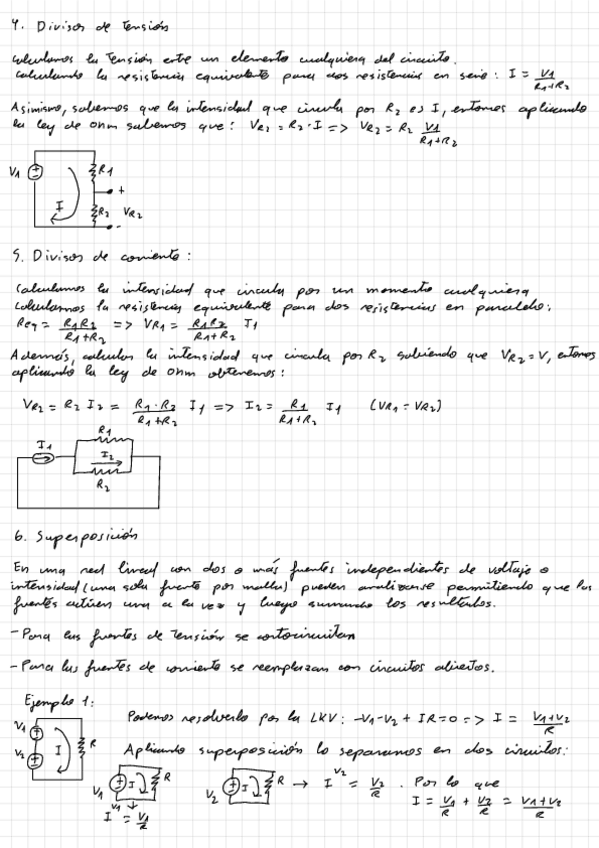 4. Divisor de tensión
Calculamos la tensión entre un elemento cualquiera del circuito.
Calculando la resistencia equivalente para dos resistencias en serie: I = V1/(R1+R2)
Asimismo, sabemos que la intensidad que circula por R2 es I, entonces aplicando
la ley de ohm sabemos que: VR2 = R2·I => VR2 = R2 V1/(R1+R2)
V1 ± I R1 + R2 VR2 -
5. Divisor de corriente:
Calculamos la intensidad que circula por un momento cualquiera
Calculamos la resistencia equivalente para dos resistencias en paralelo:
Req = R1R2/(R1+R2) => VR1 = R1R2/(R1+R2) I1
Además, calculor la intensidad que circula por R2 sabiendo que VR2 = V, entonces
aplicando la ley de ohm obtenemos:
VR2 = R2 I2 = R1·R2/(R1+R2) I1 => I2 = R1/(R1+R2) I1 (VR1 = VR2)
I1 R1 I2 R2
6. Superposición
En una red lineal con dos o más fuentes independientes de voltaje o
intensidad (una sola fuente por malla) pueden analizarse permitiendo que las
fuentes actúen una a la vez y luego sumando los resultados.
- Para las fuentes de tensión se cortocircuitan
- Para las fuentes de corriente se reemplazan con circuitos abiertos.
Ejemplo 1:
V1 V2 I R
Podemos resolverlo por la LKV: -V1-V2 + IR=0 => I = (V1+V2)/R
Aplicando superposición lo separamos en dos circuitos:
V1 I R
I^V1 = V1/R
V2 I R → I^V2 = V2/R . Por lo que
I = V1/R + V2/R = (V1+V2)/R